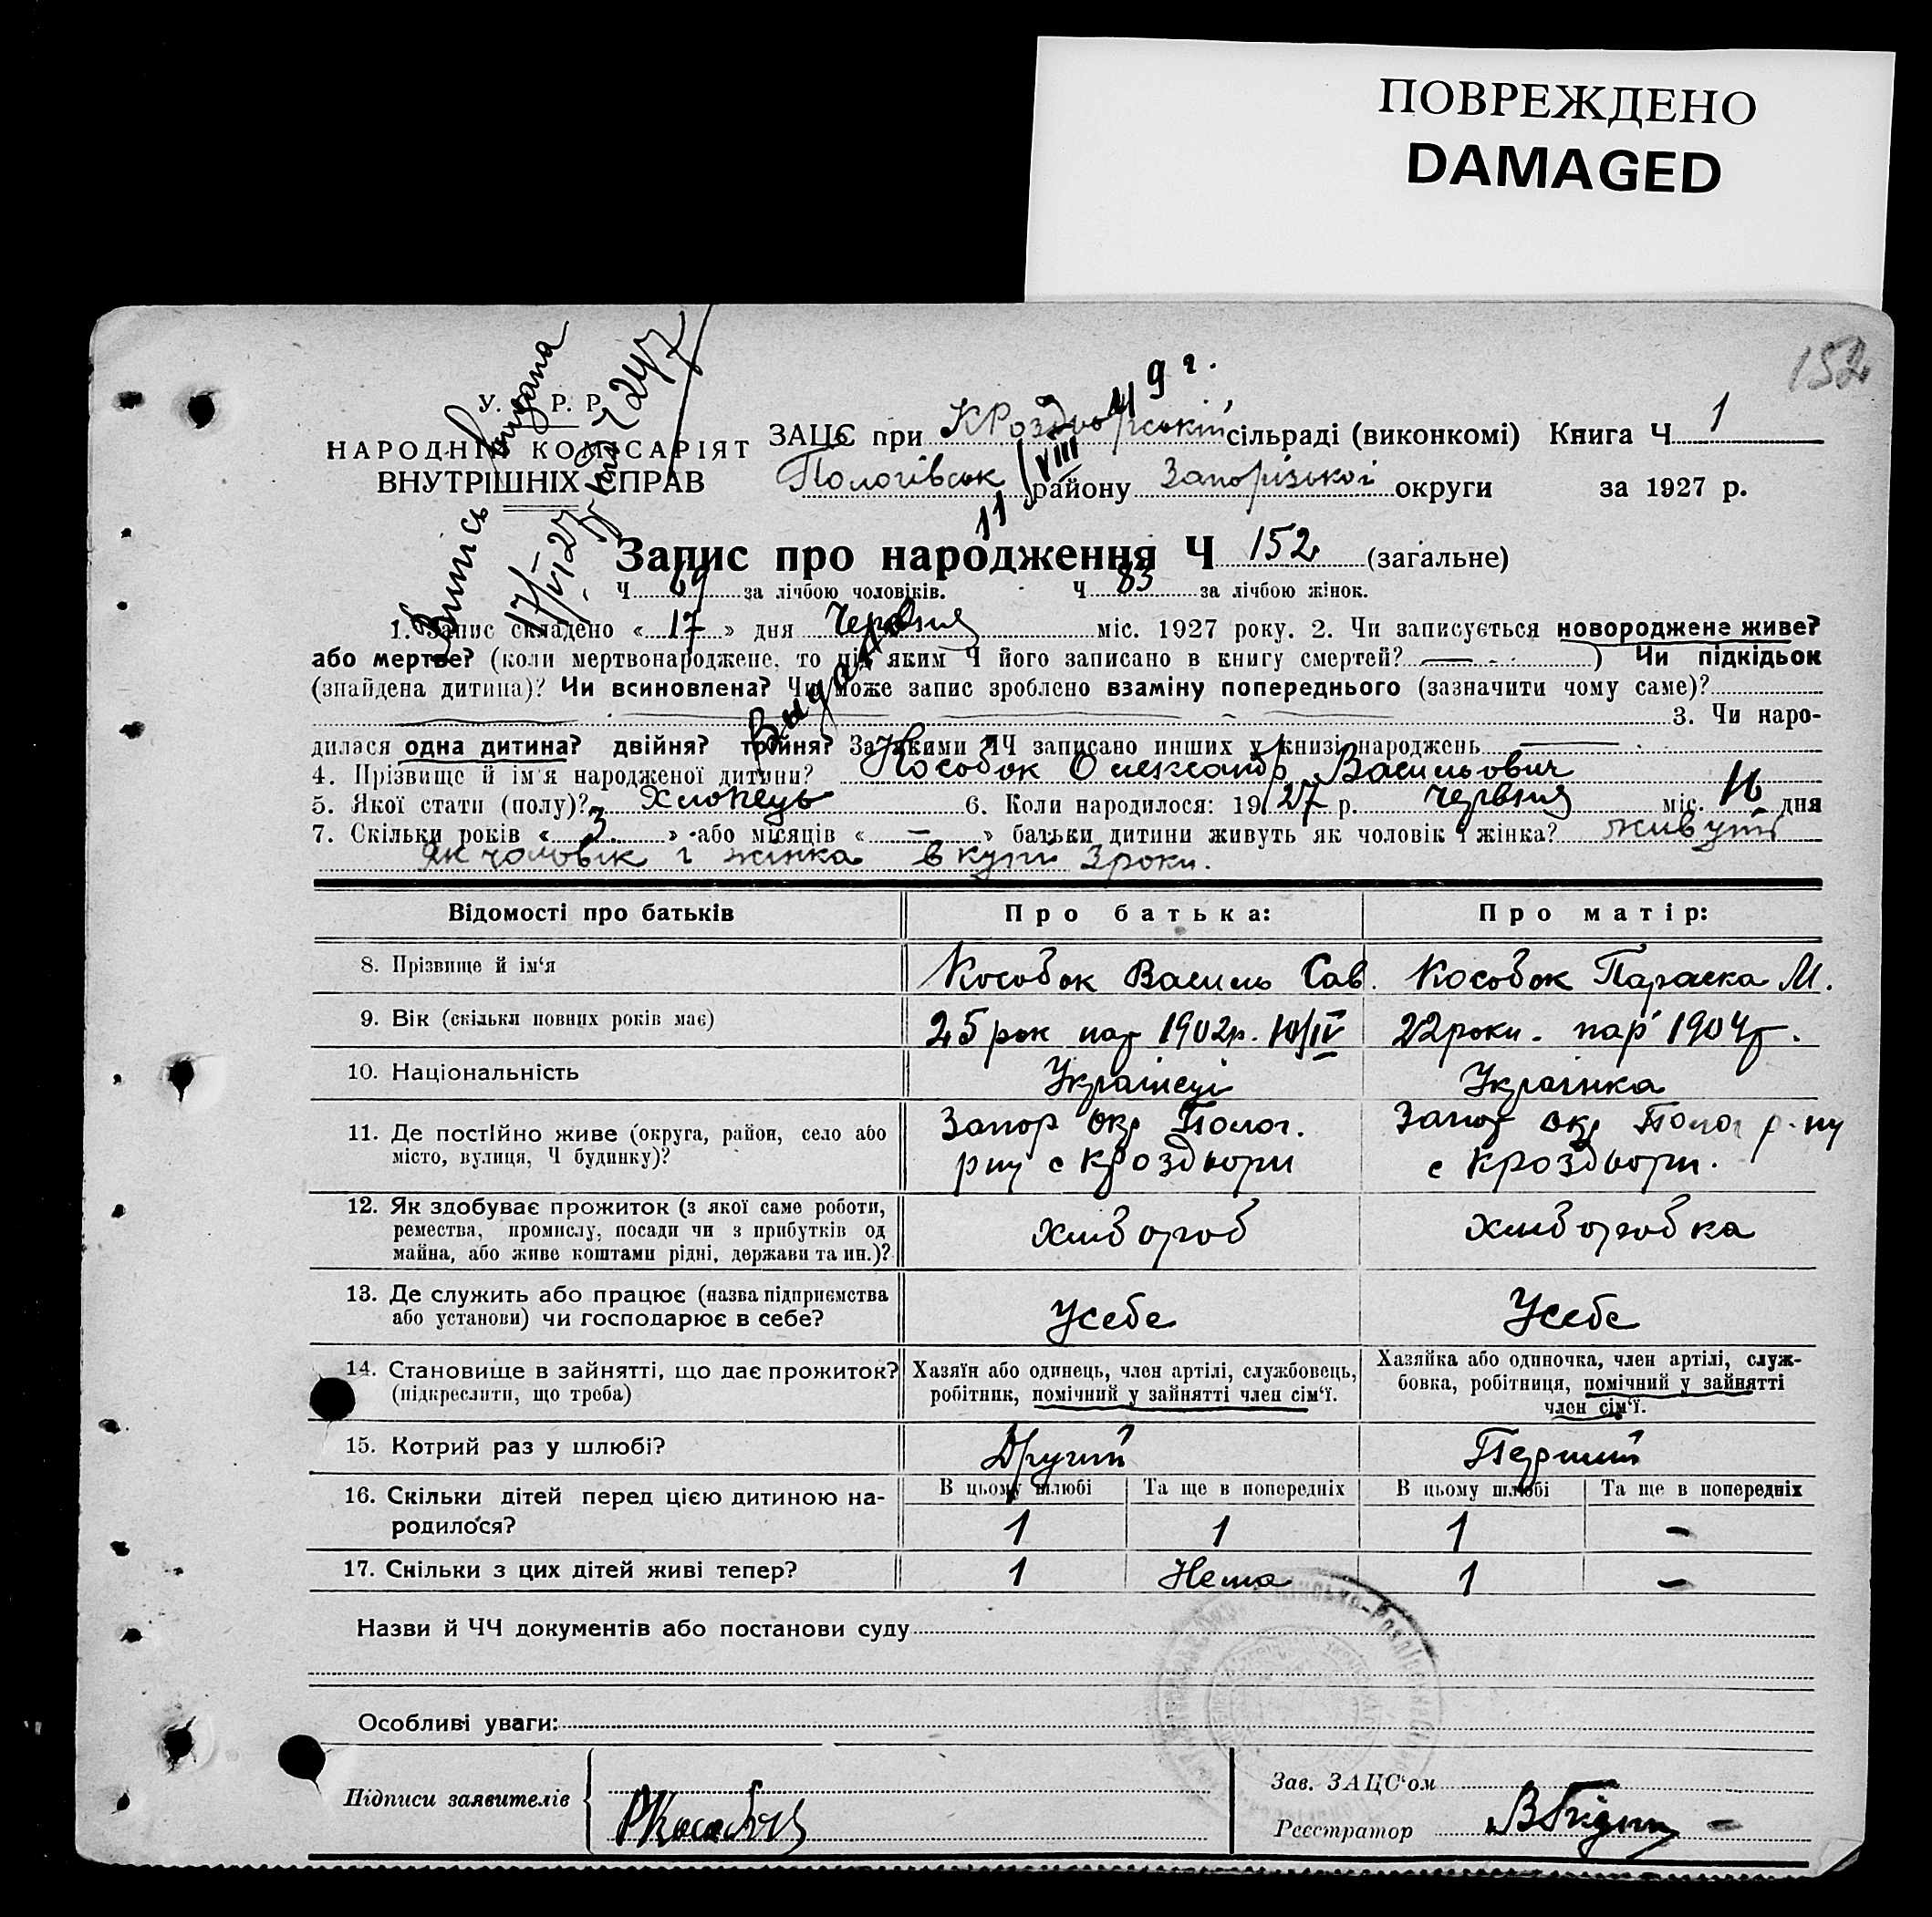 ПОВРЕЖДЕНО
DAMAGED
152
У. Р. Р.
НАРОДНІЙ КОМІСАРІЯТ
ВНУТРІШНІХ СПРАВ
ЗАЦС при КРоздворський сільраді (виконкомі) Книга Ч 1
Пологівськ району Запорізької округи за 1927 р.
Запис про народження Ч 152 (загальне)
Ч 69 за лічбою чоловіків. Ч 83 за лічбою жінок.
1. Запис складено « 17 » дня Червня міс. 1927 року. 2. Чи записується новороджене живе?
або мертве? (коли мертвонароджене, то під яким Ч його записано в книгу смертей? ) Чи підкідьок
(знайдена дитина)? Чи всиновлена? Чи може запис зроблено взаміну попереднього (зазначити чому саме)?
3. Чи наро-
дилася одна дитина? двійня? трійня? За якими ЧЧ записано инших у книзі народжень
4. Прізвище й ім'я народженої дитини? Кособок Олександр Васильович
5. Якої стати (полу)? Хлопець 6. Коли народилося: 1927 р. Червня міс. 16 дня
7. Скільки років « 3 » або місяців « — » батьки дитини живуть як чоловік і жінка? живуть
як чоловік і жінка вкупі 3 роки.
Відомості про батьків Про батька: Про матір:
8. Прізвище й ім'я Кособок Василь Сав. Кособок Параска М.
9. Вік (скільки повних років має) 25 рок нар 1902р. 10/IV 22 роки. нар 1904р.
10. Національність Українець Українка
11. Де постійно живе (округа, район, село або
місто, вулиця, Ч будинку)?
Запор окр Полог.
рну с Кроздвори
Запор окр Полог р-ну
с Кроздвори.
12. Як здобуває прожиток (з якої саме роботи,
ремества, промислу, посади чи з прибутків од
майна, або живе коштами рідні, держави та ин.)?
Хлібороб Хліборобка
13. Де служить або працює (назва підприємства
або установи) чи господарює в себе?
Усебе Усебе
14. Становище в зайнятті, що дає прожиток?
(підкреслити, що треба)
Хазяїн або одинець, член артілі, службовець,
робітник, помічний у зайнятті член сім'ї.
Хазяйка або одиночка, член артілі, служ-
бовка, робітниця, помічний у зайнятті
член сім'ї.
15. Котрий раз у шлюбі? Другий Перший
16. Скільки дітей перед цією дитиною на-
родилося?
В цьому шлюбі Та ще в попередніх В цьому шлюбі Та ще в попередніх
1 1 1 –
17. Скільки з цих дітей живі тепер? 1 Нема 1 –
Назви й ЧЧ документів або постанови суду
Особливі уваги:
Підписи заявителів
Зав. ЗАЦС'ом
Реєстратор